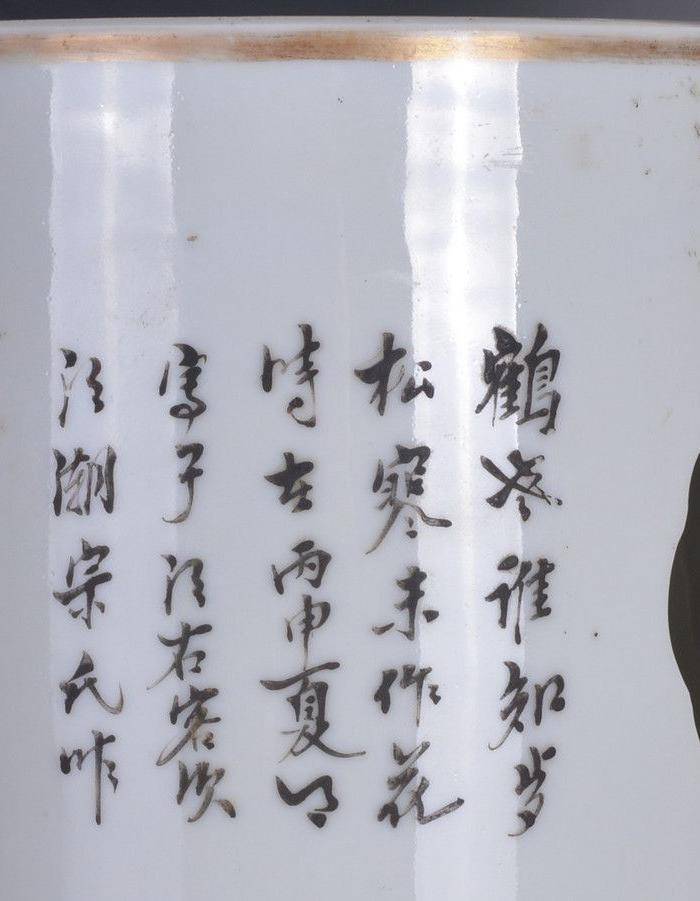 鶴老誰知岁
松寒未作花
時在丙申夏月
寫于江右客次
江潮宗氏作